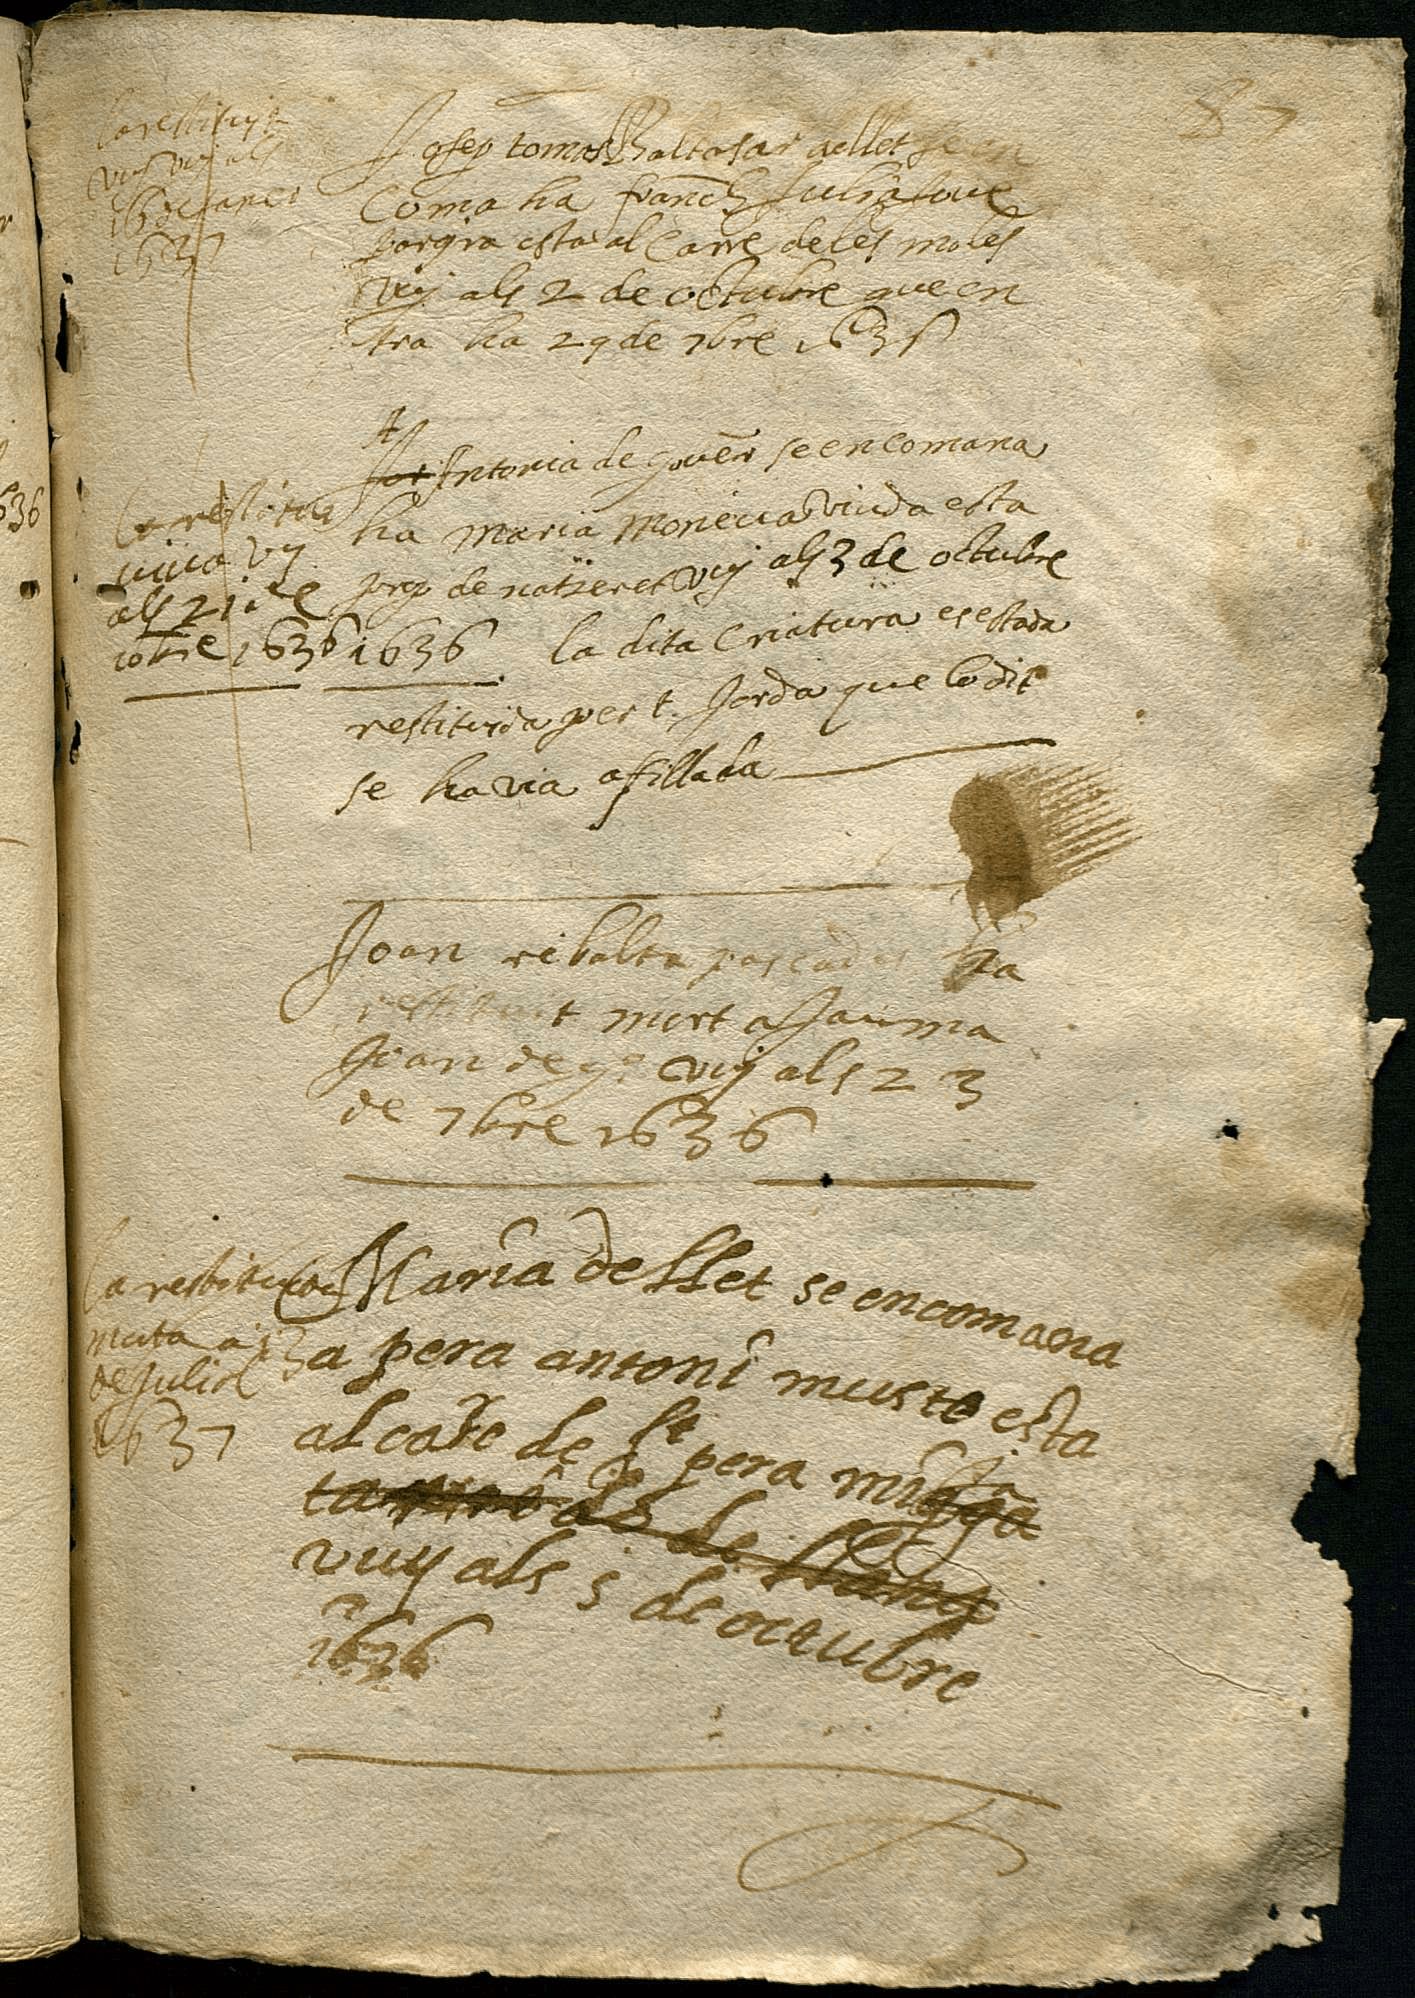 87
lo restituyt
viu vuy als
16 de janer
1637
Josep tomas Baltasar de llet se en
comana ha franch Julia
esta al Carre de les moles
vuy als 2 de octubre que en
tra ha 29 de 7bre 1636
la restitui
viua vuy
als 21 de
10bre 1636
A
Antonia de gouern se encomana
ha maria viuda esta
prop de natzeret vuy als 3 de octubre
1636 la dita Criatura es estada
restituida per t. Jorda que lo dit
se havia afillada
Joan ribalta ha
restituit mort a Jauma
Joan de go vuy als 23
de 7bre 1636
la restitui
morta a 13
de Juliol
1637
Maria de llet se encomana
a pera antoni muste esta
al carre de St pera mitja
vuy als 5 de octubre
1636